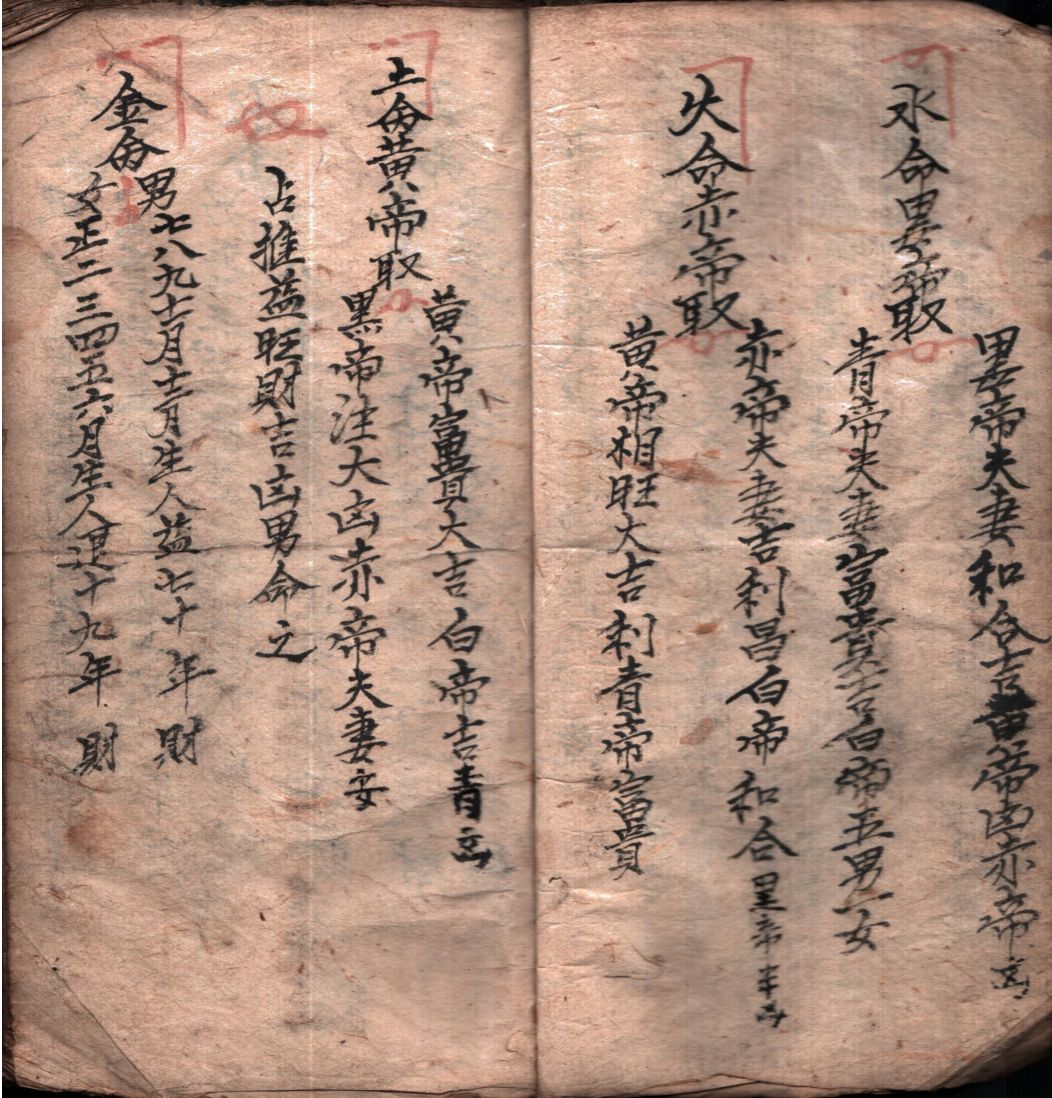 水命黑帝取
黑帝夫妻和合吉黄帝凶赤帝凶
青帝夫妻富貴大吉白帝五男二女
火命赤帝取
赤帝夫妻吉利昌白帝和合黑帝半凶
黄帝相旺大吉利青帝富貴
土命黄帝取
黄帝富貴大吉白帝吉青凶
黑帝注大凶赤帝夫妻妄
占推益旺財吉凶男命之
金命
男七八九十月十二月生人益七十年財
女正二三四五六月生人退十九年財